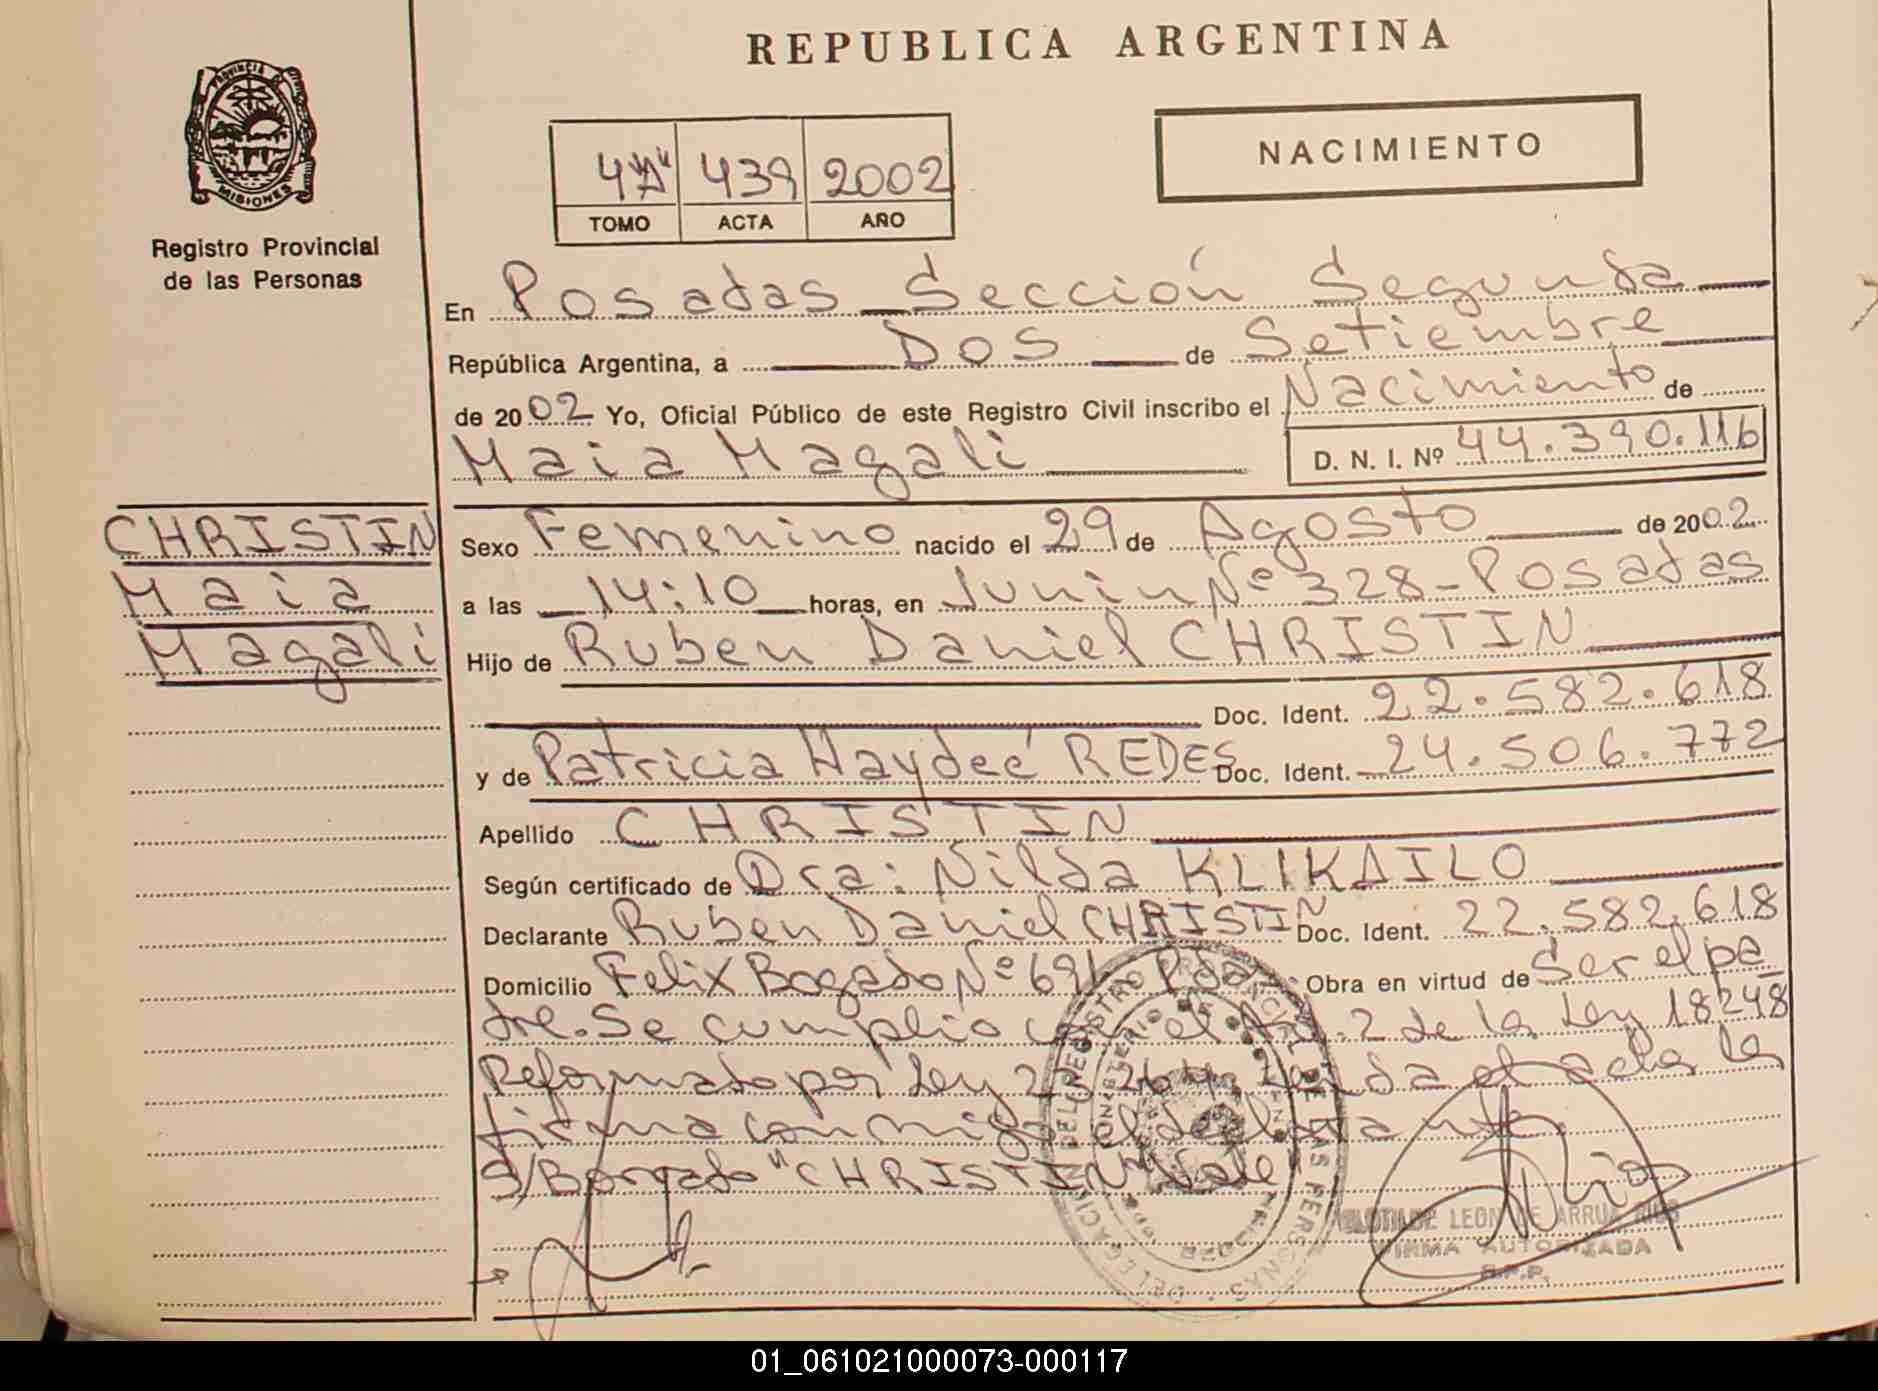 REPUBLICA ARGENTINA
PROVINCIA DE
MISIONES
Registro Provincial
de las Personas
4"A" 439 2002
TOMO ACTA AÑO
NACIMIENTO
En Posadas Sección Segunda
República Argentina, a Dos de Setiembre
de 2002 Yo, Oficial Público de este Registro Civil inscribo el Nacimiento de
Maia Magali D. N. I. Nº 44.390.116
CHRISTIN
Maia
Magali
Sexo Femenino nacido el 29 de Agosto de 2002
a las 14:10 horas, en Junin Nº 328 - Posadas
Hijo de Ruben Daniel CHRISTIN
Doc. Ident. 22.582.618
y de Patricia Haydeé REDES Doc. Ident. 24.506.772
Apellido CHRISTIN
Según certificado de Dra: Nilda KLIKAILO
Declarante Ruben Daniel CHRISTIN Doc. Ident. 22.582.618
Domicilio Felix Bogado Nº Obra en virtud de Ser el pa
dre. Se cumplió con el Art. 2 de la Ley 18248
Reformado por Ley el acta la
firma conmigo el declarante
S/Borrado "CHRISTIN" Vale
DELEGACION DEL REGISTRO PROVINCIAL DE LAS PERSONAS
MINISTERIO DE
LEON DE ARRUA RIOS
FIRMA AUTORIZADA
R.P.P.
01_061021000073-000117